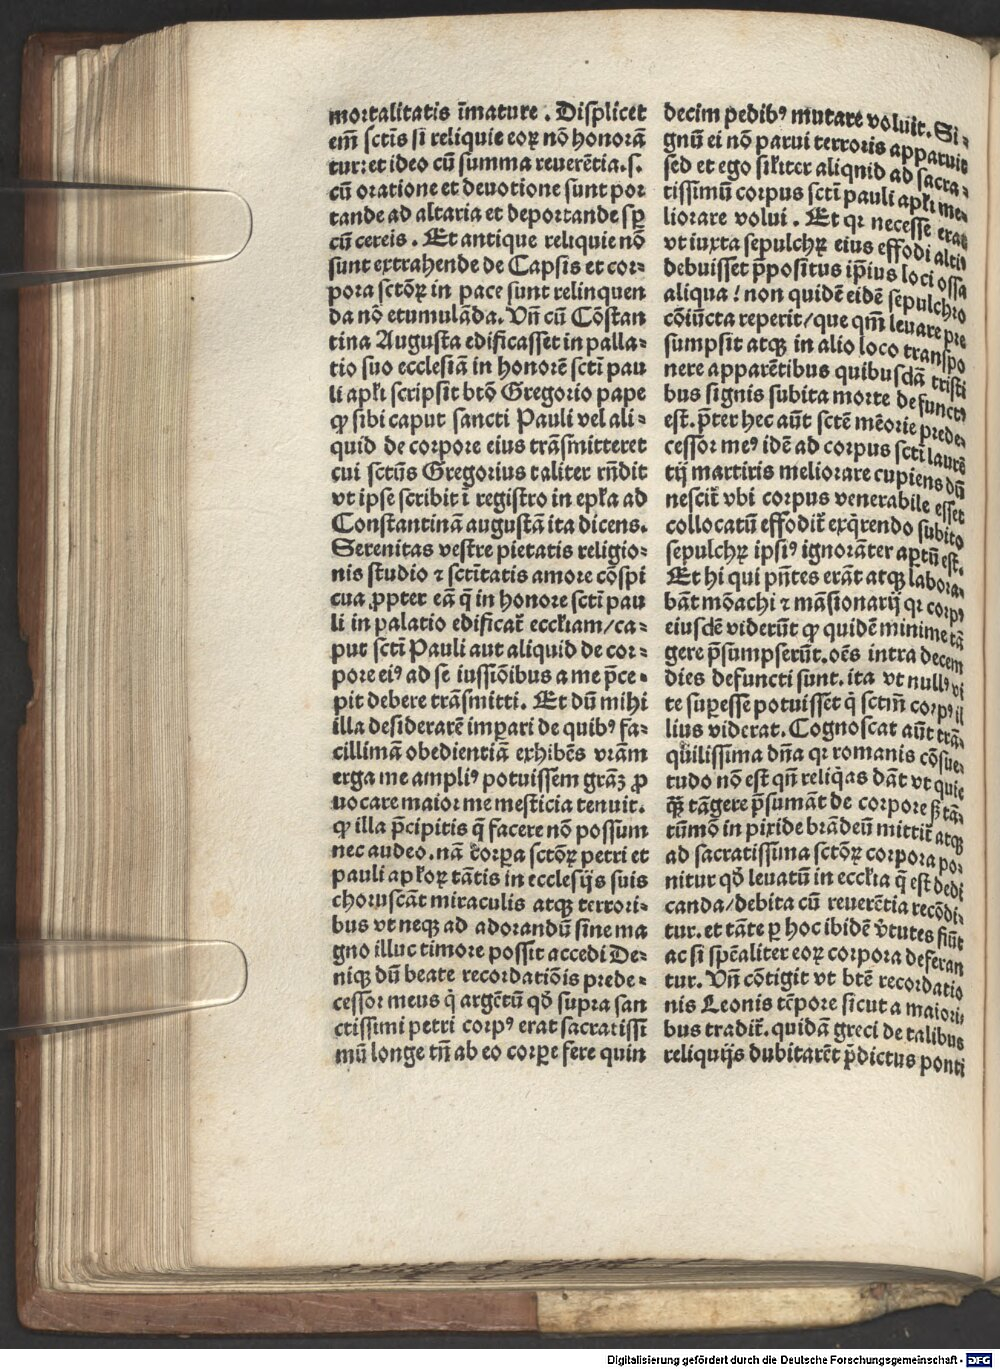 mortalitatis īmature . Displicet
em̄ sctīs si reliquie eoꝝ nō honorā
tur: et ideo cū summa reuerētia .s.
cū oratione et deuotione sunt por
tande ad altaria et deportande sꝑ
cū cereis . Et antique reliquie nō
sunt extrahende de Capsis et cor⸗
pora sctōꝝ in pace sunt relinquen
da nō etumulāda. Vn̄ cū Cōstan
tina Augusta edificasset in palla⸗
tio suo ecclesiā in honorē scti pau
li apłi scripsit btō Gregorio pape
ꝙ sibi caput sancti Pauli vel ali⸗
quid de corpore eius trāsmitteret
cui sctūs Gregorius taliter rn̄dit
vt ipse scribit ī registro in epła ad
Constantinā augustā ita dicens.
Serenitas vestre pietatis religio⸗
nis studio ⁊ sctītatis amore cōspi
cua ꝓpter eā q̄ in honore sctī pau
li in palatio edificat̄ eccłiam/ca⸗
put sctī Pauli aut aliquid de cor⸗
pore eiꝰ ad se iussiōibus a me p̄ce⸗
pit debere trāsmitti. Et dū mihi
illa desiderarē imꝑari de quibꝰ fa⸗
cillimā obedientiā exhibēs vrām
erga me ampliꝰ potuissem grāꝫ ꝓ
uocare maior me mesticia tenuit.
ꝙ illa p̄cipitis q̄ facere nō possum
nec audeo. nā corꝑa sctōꝝ petri et
pauli apłoꝝ tātis in ecclesijs suis
choruscāt miraculis atqꝫ terrori⸗
bus vt neqꝫ ad adorandū sine ma
gno illuc timore possit accedi De⸗
niqꝫ dū beate recordatiōis prede⸗
cessor meus q̄ argētū qd̄ supra san
ctissimi petri corpꝰ erat sacratissi
mū longe tn̄ ab eo corꝑe fere quin
decim pedibꝰ mutare voluit. Si⸗
gnū ei nō parui terroris apparuit
sed et ego siłiter aliqnid ad sacra⸗
tissimū corpus sctī pauli apłi me⸗
liorare volui . Et qꝛ necesse erat
vt iuxta sepulchꝝ eius effodi altiꝰ
debuisset p̄positus ip̄ius loci ossa
aliqua ! non quidē eidē sepulchro
cōiūcta reperit/que qm̄ leuare pre
sumpsit atqꝫ in alio loco transpo
nere apparētibus quibusdā tristi
bus signis subita morte defunctꝰ
est. p̄ter hec aūt sctē mēorie prede⸗
cessor meꝰ idē ad corpus scti laurē
tij martiris meliorare cupiens dū
nescit̄ vbi corpus venerabile esset
collocatū effodit̄ exq̄rendo subito
sepulchꝝ ipsiꝰ ignorāter aꝑtū est.
Et hi qui pn̄tes erāt atqꝫ labora⸗
bāt mōachi ⁊ māsionarij qꝛ corpꝰ
eiusdē viderūt ꝙ quidē minime tā
gere p̄sumpserūt. oēs intra decem
dies defuncti sunt. ita vt nullꝰ vi
te suꝑesse potuisset q̄ sctm̄ corpꝰ il
lius viderat. Cognoscat aūt trā⸗
q̄illissima dn̄a qꝛ romanis cōsue⸗
tudo nō est qn̄ reliq̄as dāt vt quic
q̄ꝫ tāgere p̄sumāt de corpore sꝫ tā⸗
tūmō in pixide brādeū mittit̄ atqꝫ
ad sacratissima sctōꝝ corpora po⸗
nitur qd̄ leuatū in eccłia q̄ est dedi
canda/debita cū reuerētia recōdi⸗
tur. et tāte ꝑ hoc ibidē v̄tutes fiūt
ac si spēaliter eoꝝ corpora deferan
tur. Vn̄ cōtigit vt btē recordatio
nis Leonis tēpore sicut a maiori⸗
bus tradit̄. quidā greci de talibus
reliquijs dubitarēt p̄dictus ponti
Digitalisierung gefördert durch die Deutsche Forschungsgemeinschaft - DFG